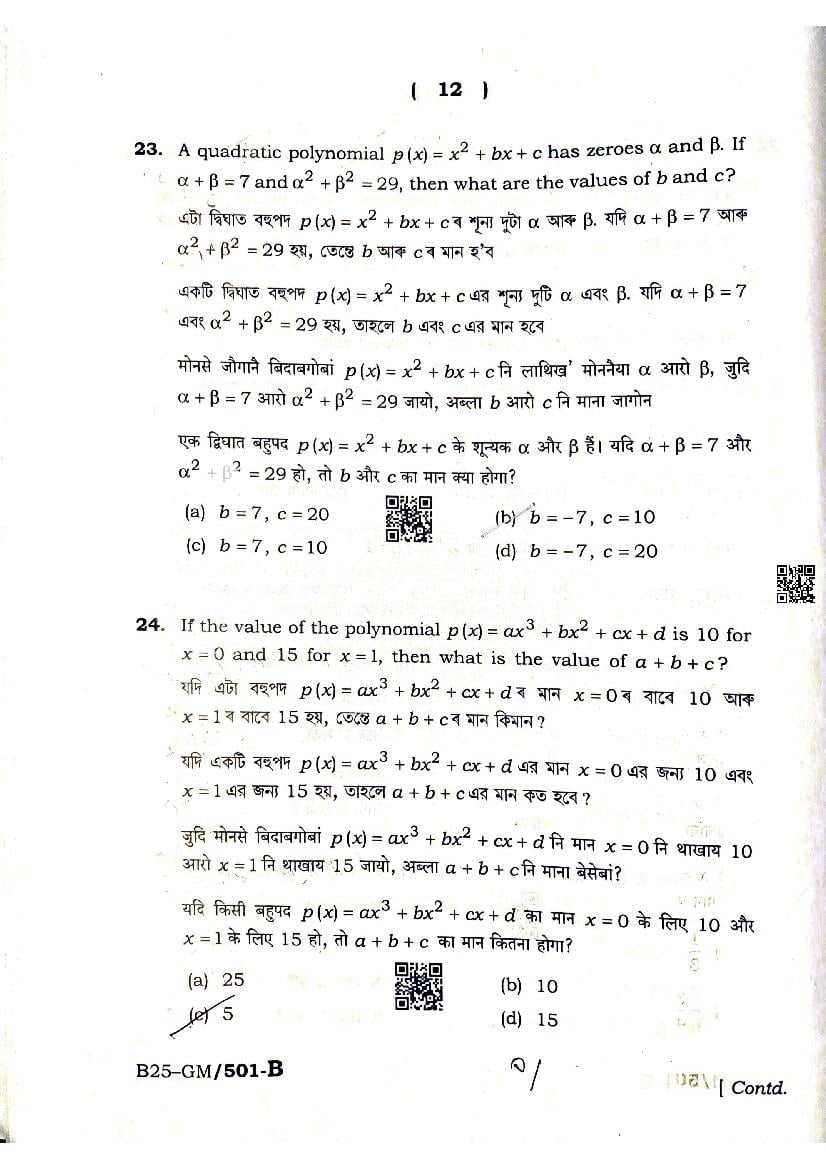 ( 12 )
23. A quadratic polynomial p(x) = x² + bx + c has zeroes α and β. If
α + β = 7 and α² + β² = 29, then what are the values of b and c?
এটা দ্বিঘাত বহুপদ p(x) = x² + bx + c ৰ শূন্য দুটা α আৰু β. যদি α + β = 7 আৰু
α² + β² = 29 হয়, তেন্তে b আৰু c ৰ মান হ'ব
একটি দ্বিঘাত বহুপদ p(x) = x² + bx + c এর শূন্য দুটি α এবং β. যদি α + β = 7
এবং α² + β² = 29 হয়, তাহলে b এবং c এর মান হবে
मोनसे जौगानै बिदाबगोबां p(x) = x² + bx + c नि लाथिख' मोननैया α आरो β, जुदि
α + β = 7 आरो α² + β² = 29 जायो, अब्ला b आरो c नि माना जागोन
एक द्विघात बहुपद p(x) = x² + bx + c के शून्यक α और β हैं। यदि α + β = 7 और
α² + β² = 29 हो, तो b और c का मान क्या होगा?
(a) b = 7, c = 20
(b) b = −7, c = 10
(c) b = 7, c = 10
(d) b = −7, c = 20
24. If the value of the polynomial p(x) = ax³ + bx² + cx + d is 10 for
x = 0 and 15 for x = 1, then what is the value of a + b + c?
যদি এটা বহুপদ p(x) = ax³ + bx² + cx + d ৰ মান x = 0 ৰ বাবে 10 আৰু
x = 1 ৰ বাবে 15 হয়, তেন্তে a + b + c ৰ মান কিমান ?
যদি একটি বহুপদ p(x) = ax³ + bx² + cx + d এর মান x = 0 এর জন্য 10 এবং
x = 1 এর জন্য 15 হয়, তাহলে a + b + c এর মান কত হবে ?
जुदि मोनसे बिदाबगोबां p(x) = ax³ + bx² + cx + d नि मान x = 0 नि थाखाय 10
आरो x = 1 नि थाखाय 15 जायो, अब्ला a + b + c नि माना बेसेबां?
यदि किसी बहुपद p(x) = ax³ + bx² + cx + d का मान x = 0 के लिए 10 और
x = 1 के लिए 15 हो, तो a + b + c का मान कितना होगा?
(a) 25
(b) 10
(c) 5
(d) 15
B25–GM/501-B
[ Contd.